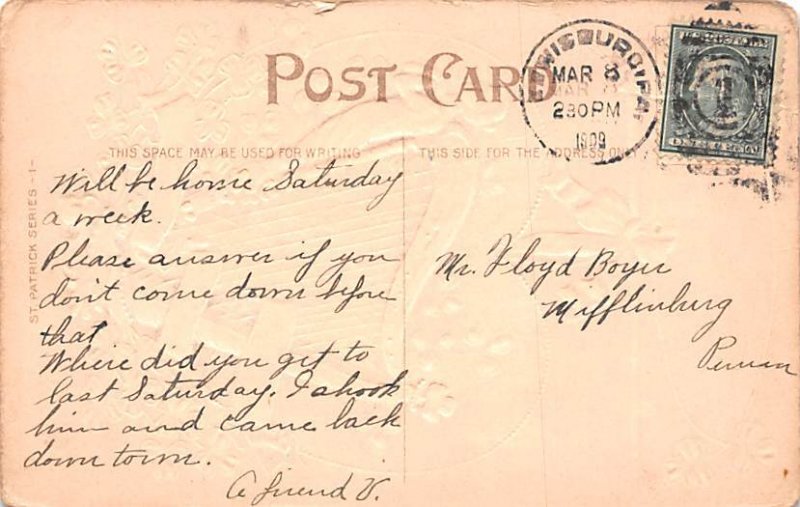 POST CARD
MAR 8
230 PM
1909
THIS SPACE MAY BE USED FOR WRITING
THIS SIDE FOR THE ADDRESS ONLY
ST. PATRICK SERIES -1-
Will be home Saturday
a week.
Please answer if you
don't come down before
that
Where did you get to
last Saturday. I shook
him and came back
down town.
A friend V.
Mr. Floyd Boyer
Mifflinburg